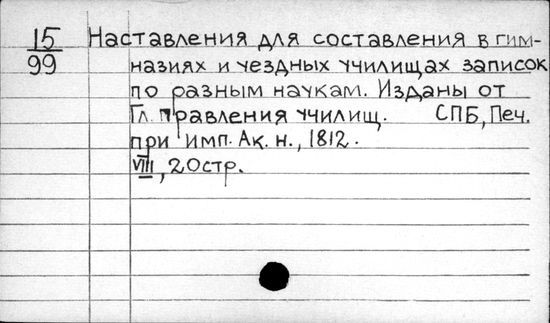 15
99
Наставления для составления в гим-
назиях и уездных училищах записок
по разным наукам. Изданы от
Гл. правления училищ. СПБ, Печ.
при имп. Ак. н., 1812.
VIII, 20стр.